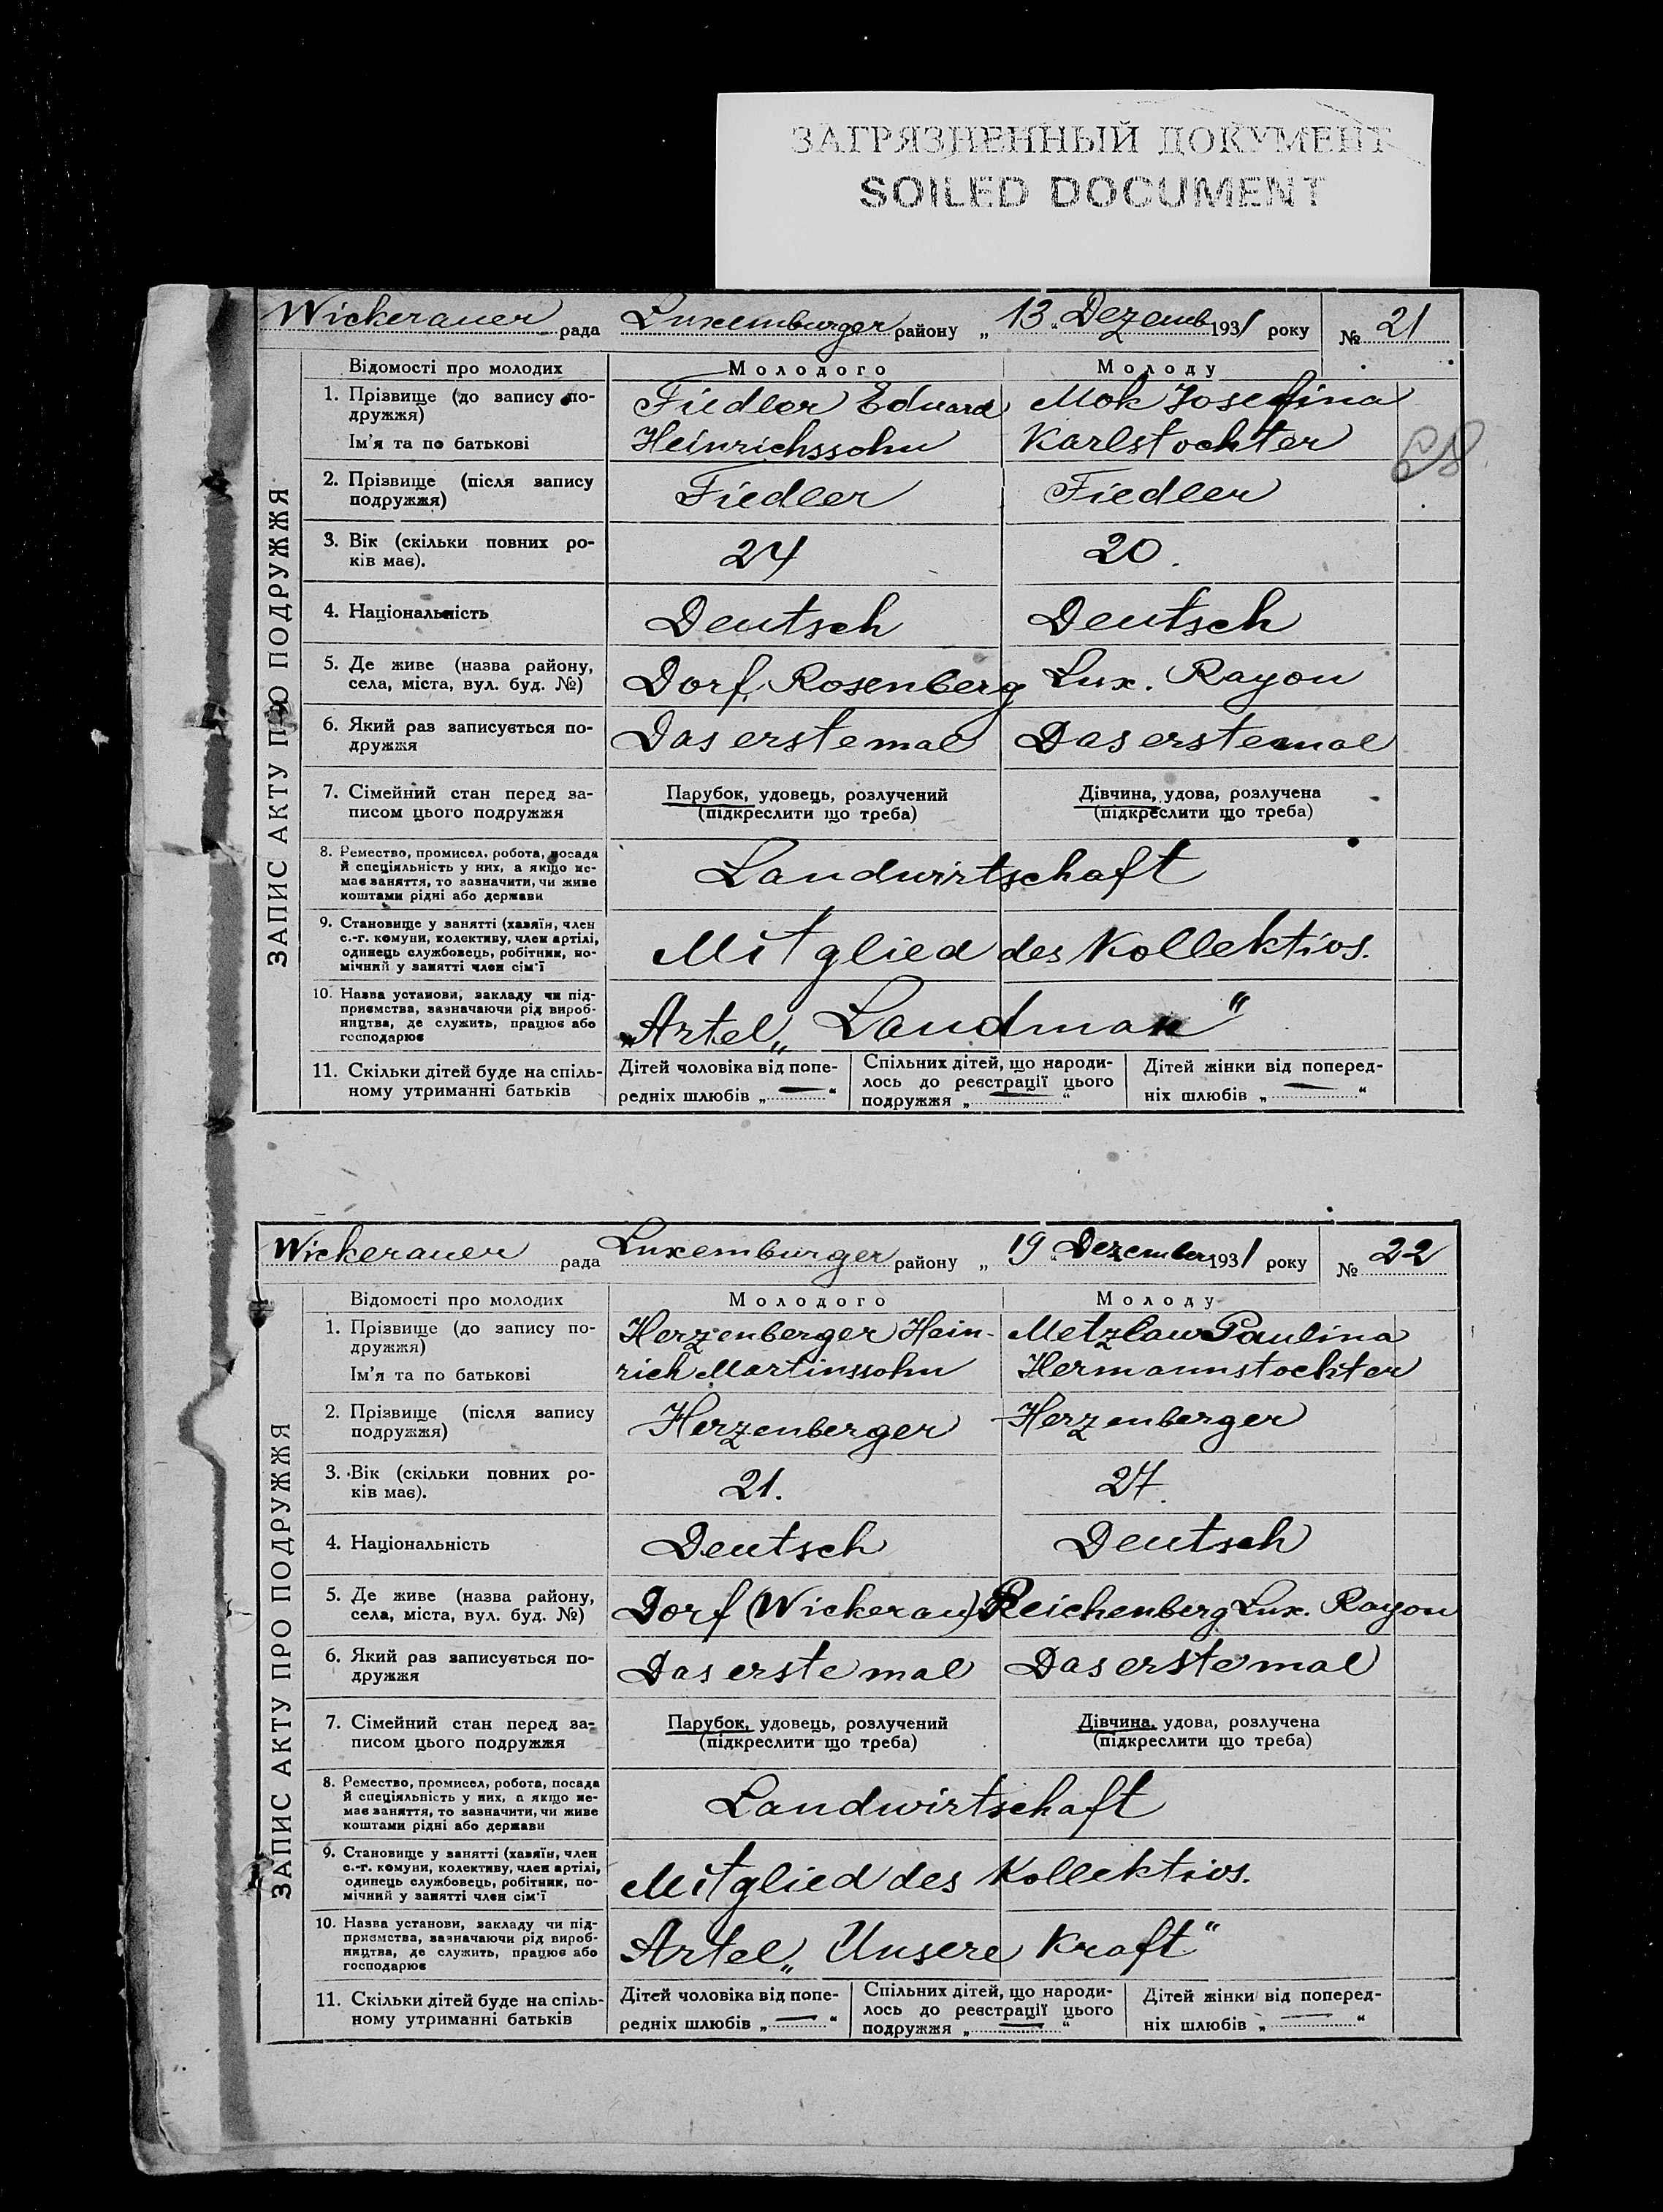 ЗАГРЯЗНЕННЫЙ ДОКУМЕНТ
SOILED DOCUMENT
Wickerauer рада Luxemburger району „ 13 „ Dezemb 1931 року № 21
ЗАПИС АКТУ ПРО ПОДРУЖЖЯ
Відомості про молодих Молодого Молоду
1. Прізвище (до запису по-
дружжя)
Ім'я та по батькові
Fiedler Eduard
Heinrichssohn
Mok Josefina
Karlstochter
2. Прізвище (після запису
подружжя)
Fiedler Fiedler
3. Вік (скільки повних ро-
ків має).
24 20.
4. Національність Deutsch Deutsch
5. Де живе (назва району,
села, міста, вул. буд. №)
Dorf Rosenberg Lux. Rayon
6. Який раз записується по-
дружжя
Das erste mal Das erste mal
7. Сімейний стан перед за-
писом цього подружжя
Парубок, удовець, розлучений
(підкреслити що треба)
Дівчина, удова, розлучена
(підкреслити що треба)
8. Ремество, промисел, робота, посада
й спеціяльність у них, а якщо не-
має заняття, то зазначити, чи живе
коштами рідні або держави
Landwirtschaft
9. Становище у занятті (хазяїн, член
с.-г. комуни, колективу, член артілі,
одинець службовець, робітник, по-
мічний у занятті член сім'ї
Mitglied des Kollektivs.
10. Назва установи, закладу чи під-
приємства, зазначаючи рід вироб-
ництва, де служить, працює або
господарює
Artel „ Landman "
11. Скільки дітей буде на спіль-
ному утриманні батьків
Дітей чоловіка від попе-
редніх шлюбів „ — "
Спільних дітей, що народи-
лось до реєстрації цього
подружжя „ — "
Дітей жінки від поперед-
ніх шлюбів „ — "
Wickerauer рада Luxemburger району „ 19 „ Dezember 1931 року № 22
ЗАПИС АКТУ ПРО ПОДРУЖЖЯ
Відомості про молодих Молодого Молоду
1. Прізвище (до запису по-
дружжя)
Ім'я та по батькові
Herzenberger Hein-
rich Martinssohn
Metzlaw Paulina
Hermannstochter
2. Прізвище (після запису
подружжя)
Herzenberger Herzenberger
3. Вік (скільки повних ро-
ків має).
21. 27.
4. Національність Deutsch Deutsch
5. Де живе (назва району,
села, міста, вул. буд. №)
Dorf (Wickerau) Reichenberg Lux. Rayon
6. Який раз записується по-
дружжя
Das erste mal Das erste mal
7. Сімейний стан перед за-
писом цього подружжя
Парубок, удовець, розлучений
(підкреслити що треба)
Дівчина, удова, розлучена
(підкреслити що треба)
8. Ремество, промисел, робота, посада
й спеціяльність у них, а якщо не-
має заняття, то зазначити, чи живе
коштами рідні або держави
Landwirtschaft
9. Становище у занятті (хазяїн, член
с.-г. комуни, колективу, член артілі,
одинець службовець, робітник, по-
мічний у занятті член сім'ї
Mitglied des Kollektivs.
10. Назва установи, закладу чи під-
приємства, зазначаючи рід вироб-
ництва, де служить, працює або
господарює
Artel „ Unsere Kraft "
11. Скільки дітей буде на спіль-
ному утриманні батьків
Дітей чоловіка від попе-
редніх шлюбів „ — "
Спільних дітей, що народи-
лось до реєстрації цього
подружжя „ — "
Дітей жінки від поперед-
ніх шлюбів „ — "